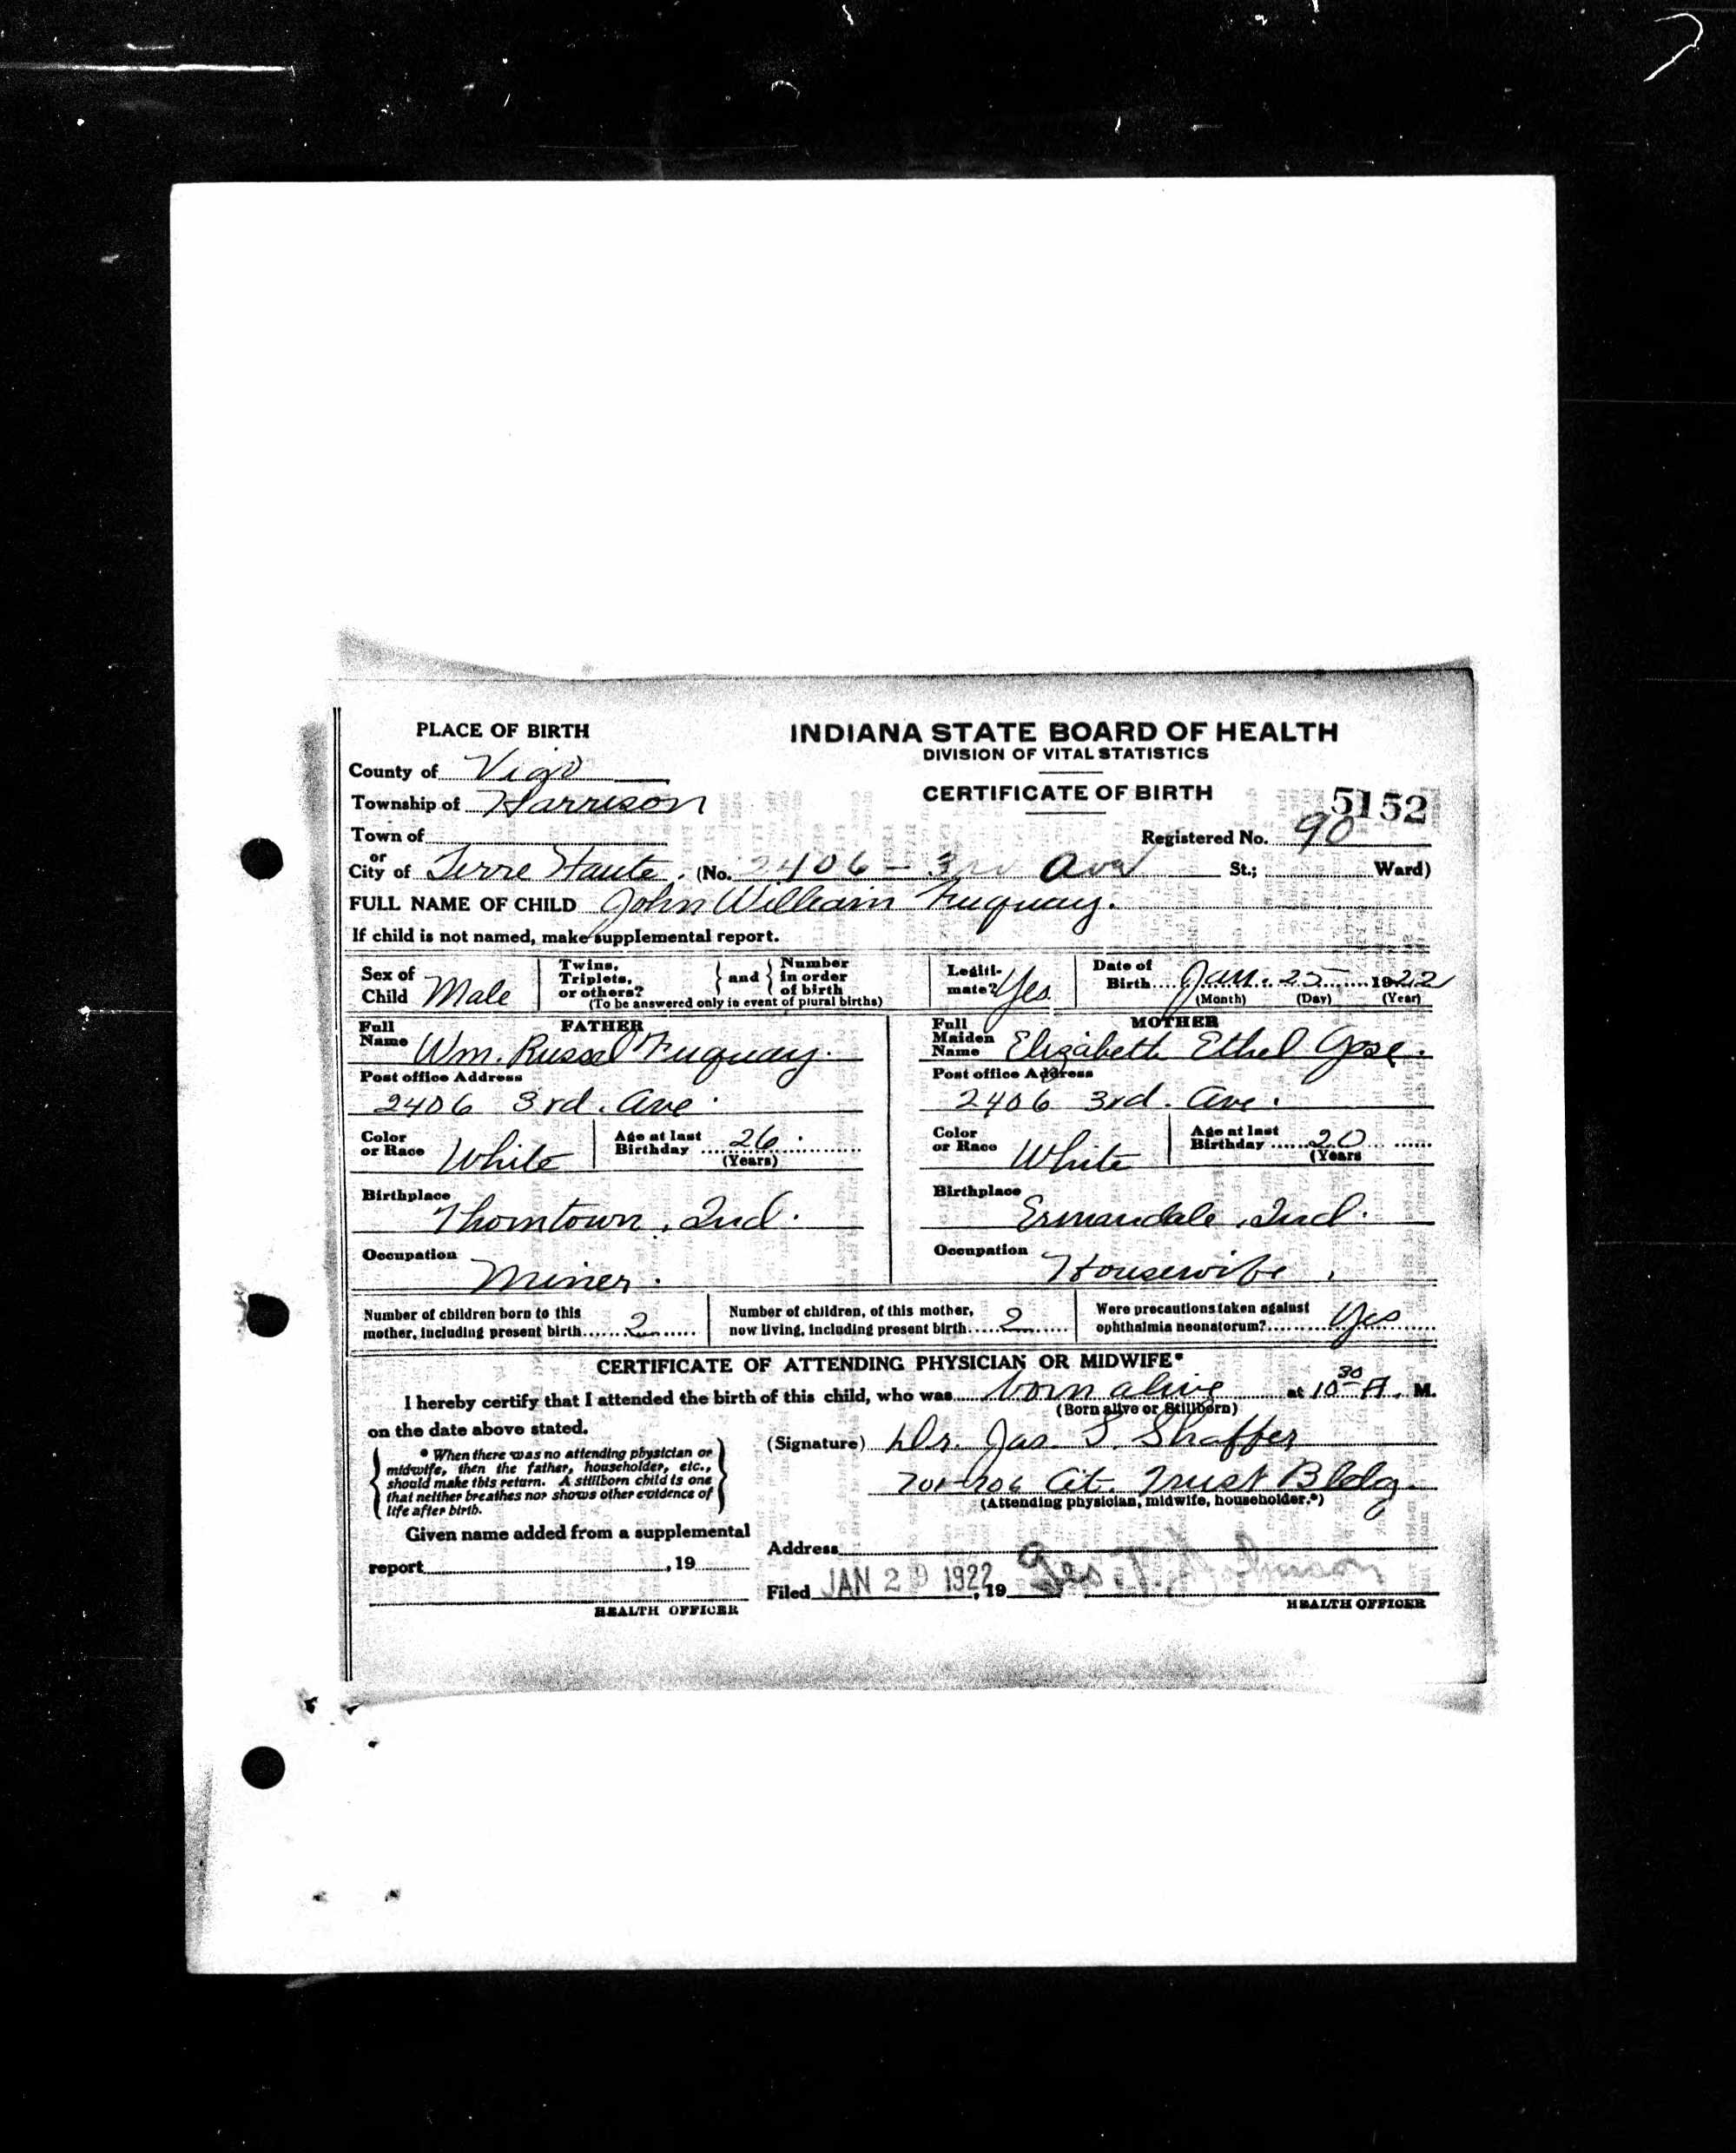 PLACE OF BIRTH
INDIANA STATE BOARD OF HEALTH
DIVISION OF VITAL STATISTICS
County of Vigo
CERTIFICATE OF BIRTH
5152
Township of Harrison
Town of
Registered No. 90
or
City of Terre Haute. (No. 2406 - 3rd Ave St.; Ward)
FULL NAME OF CHILD John William Fuquay.
If child is not named, make supplemental report.
Sex of Child Male
Twins, Triplets, or others? } and { Number in order of birth
(To be answered only in event of plural births)
Legiti-mate? Yes.
Date of Birth Jan. 25 1922
(Month) (Day) (Year)
FATHER
Full Name Wm. Russel Fuquay.
Post office Address
2406 3rd. Ave.
Color or Race White
Age at last Birthday 26.
(Years)
Birthplace
Thorntown, Ind.
Occupation
Miner.
MOTHER
Full Maiden Name Elizabeth Ethel Gose.
Post office Address
2406 3rd. Ave.
Color or Race White
Age at last Birthday 20
(Years
Birthplace
Ind.
Occupation Housewife.
Number of children born to this mother, including present birth 2
Number of children, of this mother, now living, including present birth 2
Were precautions taken against ophthalmia neonatorum? Yes
CERTIFICATE OF ATTENDING PHYSICIAN OR MIDWIFE*
I hereby certify that I attended the birth of this child, who was born alive at 10 30 A. M.
(Born alive or Stillborn)
on the date above stated.
(Signature) Dr. Jas. S. Shaffer
* When there was no attending physician or
midwife, then the father, householder, etc.,
should make this return. A stillborn child is one
that neither breathes nor shows other evidence of
life after birth.
701-706 Cit. Trust Bldg.
(Attending physician, midwife, householder.*)
Given name added from a supplemental
report , 19
Address
Filed JAN 29 1922, 19
HEALTH OFFICER
HEALTH OFFICER